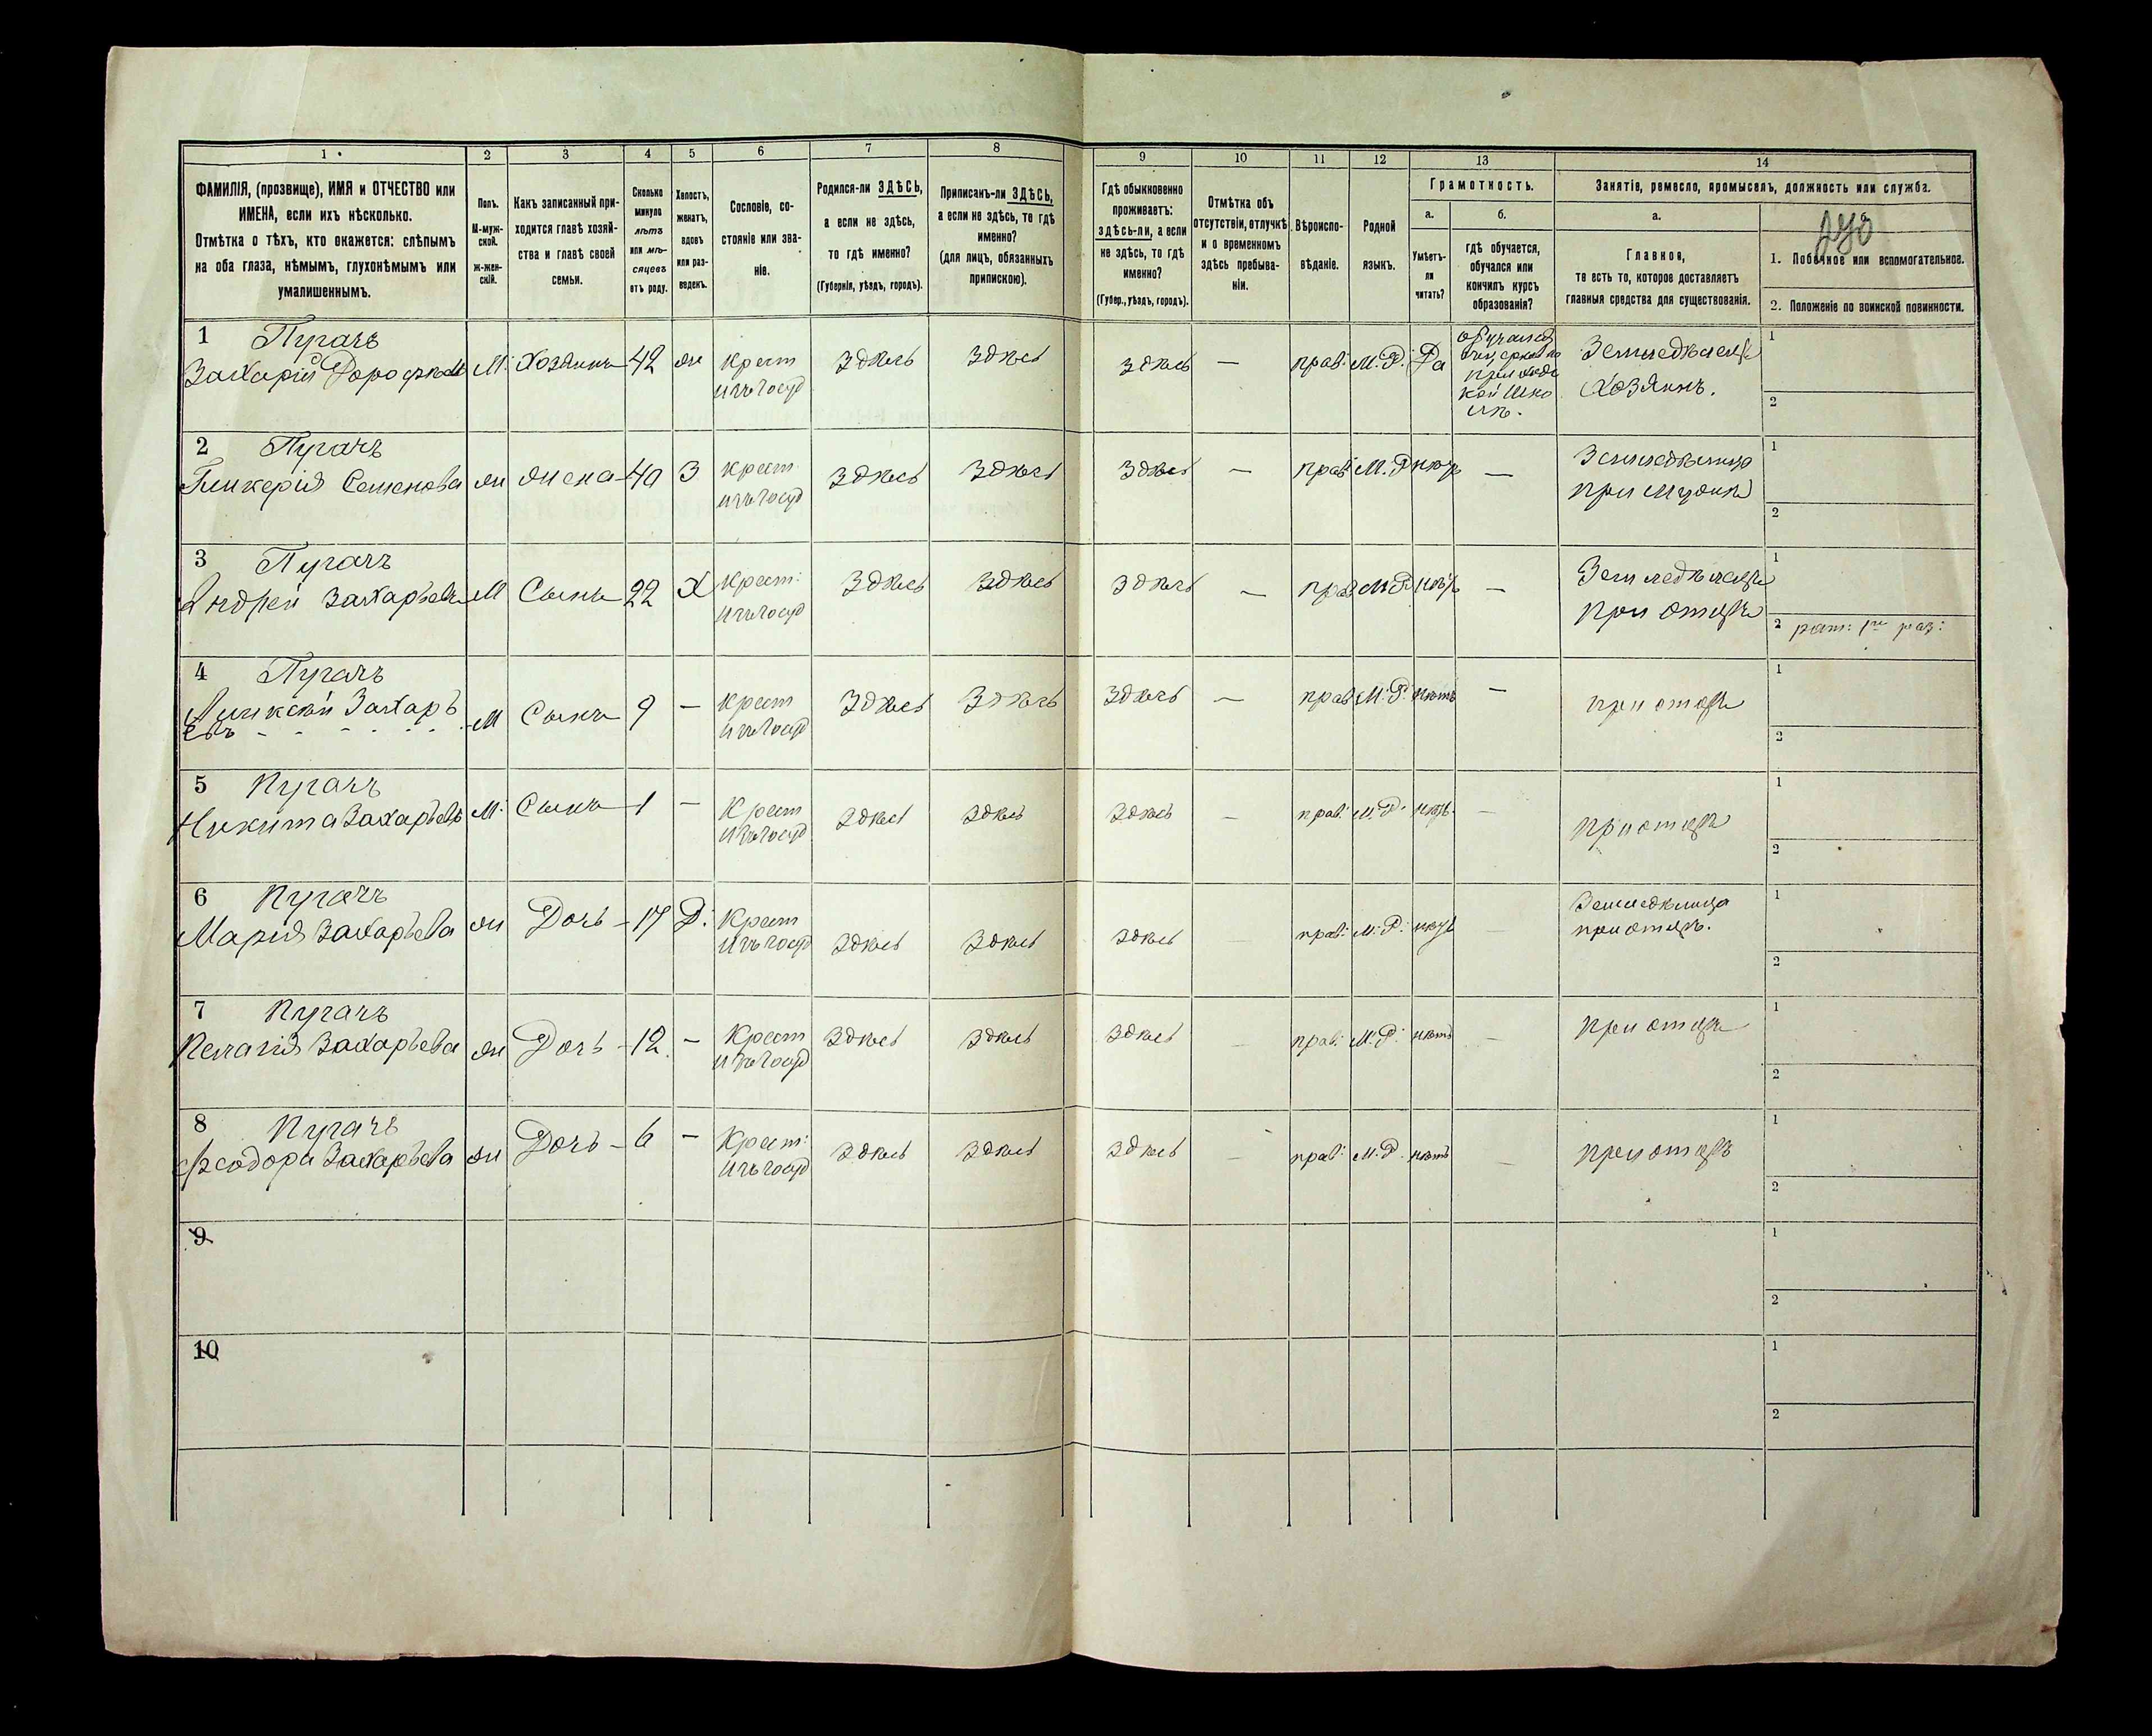 1 2 3 4 5 6 7 8 9 10 11 12 13 14
ФАМИЛІЯ, (прозвище), ИМЯ и ОТЧЕСТВО или
ИМЕНА, если ихъ нѣсколько.
Отмѣтка о тѣхъ, кто окажется: слѣпымъ
на оба глаза, нѣмымъ, глухонѣмымъ или
умалишеннымъ.
Полъ.
М-муж-
ской.
ж-жен-
скій.
Какъ записанный при-
ходится главѣ хозяй-
ства и главѣ своей
семьи.
Сколько
минуло
лѣтъ
или мѣ-
сяцевъ
отъ роду.
Холостъ,
женатъ,
вдовъ
или раз-
веденъ.
Сословіе, со-
стояніе или зва-
ніе.
Родился-ли ЗДѢСЬ,
а если не здѣсь,
то гдѣ именно?
(Губернія, уѣздъ, городъ).
Приписанъ-ли ЗДѢСЬ,
а если не здѣсь, то гдѣ
именно?
(для лицъ, обязанныхъ
припискою).
Гдѣ обыкновенно
проживаетъ:
здѣсь-ли, а если
не здѣсь, то гдѣ
именно?
(Губер., уѣздъ, городъ).
Отмѣтка объ
отсутствіи, отлучкѣ
и о временномъ
здѣсь пребыва-
ніи.
Вѣроиспо-
вѣданіе.
Родной
языкъ.
Грамотность.
а.
Умѣетъ-
ли
читать?
б.
гдѣ обучается,
обучался или
кончилъ курсъ
образованія?
Занятіе, ремесло, промыселъ, должность или служба.
а.
Главное,
то есть то, которое доставляетъ
главныя средства для существованія.
1. Побочное или вспомогательное.
2. Положеніе по воинской повинности.
1 Пугачъ
Захарій Дорофѣевъ М. Хозяинъ 42 ж крест здѣсь здѣсь здѣсь — прав. М. Р. Да
обучался
приход
кой шко
лѣ.
Земледѣлецъ
Хозяинъ.
1
2
2 Пугачъ
Гликерія Семенова ж жена 40 З крест здѣсь здѣсь здѣсь — прав. М. Р. нѣтъ —
при мужѣ
1
2
3 Пугачъ
Андрей Захарьевъ М Сынъ 22 Х крест: здѣсь здѣсь здѣсь — прав М. Р. нѣтъ —
Земледѣлецъ
при отцѣ
1
2 рат: 1го раз:
4 Пугачъ
Алексѣй Захарь
евъ М Сынъ 9 — крест здѣсь здѣсь здѣсь — прав М. Р. нѣтъ — при отцѣ
1
2
5 Пугачъ
Никита Захарьевъ М. Сынъ 1 — Крест здѣсь здѣсь здѣсь — прав. М. Р. нѣтъ — при отцѣ
1
2
6 Пугачъ
Марія Захарьева ж Дочь 17 Д. Крест здѣсь здѣсь здѣсь — прав: М. Р. нѣтъ —
при отцѣ.
1
2
7 Пугачъ
Пелагія Захарьева ж Дочь 12. — Крест здѣсь здѣсь здѣсь — прав. М. Р. нѣтъ — при отцѣ
1
2
8 Пугачъ
Феодора Захарьева ж Дочь 6 — Крест: здѣсь здѣсь здѣсь — прав: М. Р. нѣтъ — при отцѣ
1
2
9
1
2
10
1
2